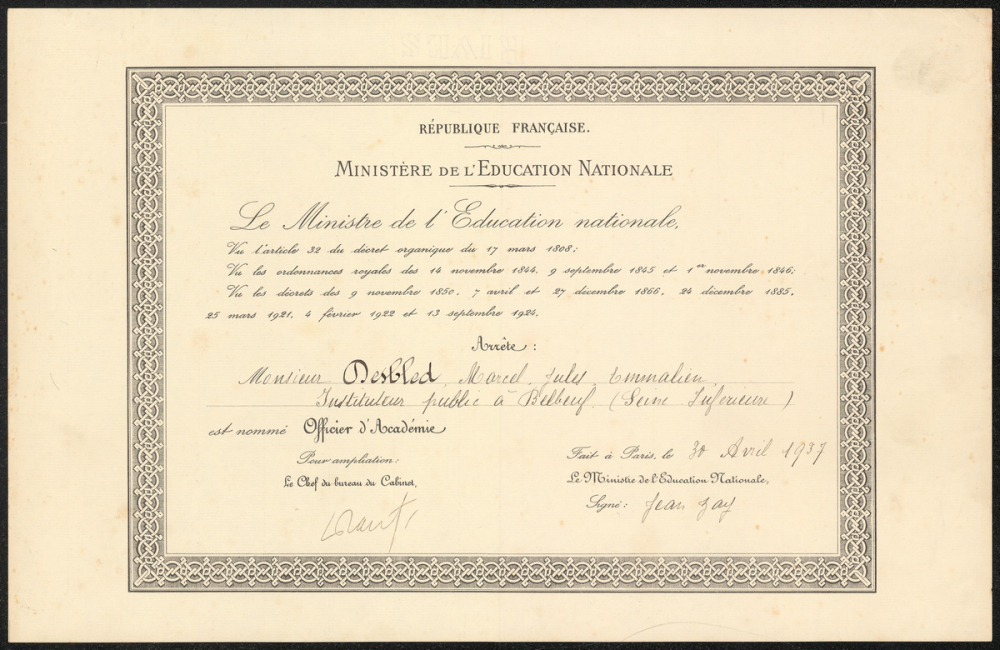 RÉPUBLIQUE FRANÇAISE.
MINISTÈRE DE L'EDUCATION NATIONALE
Le Ministre de l'Education nationale,
Vu l'article 32 du décret organique du 17 mars 1808;
Vu les ordonnances royales des 14 novembre 1844, 9 septembre 1845 et 1er novembre 1846;
Vu les décrets des 9 novembre 1850, 7 avril et 27 décembre 1866, 24 décembre 1885,
25 mars 1921, 4 février 1922 et 13 septembre 1924,
Arrête :
Monsieur Desbled, Marcel, Jules, Emmalien,
Instituteur public à Belbeuf (Seine Inférieure)
est nommé Officier d'Académie
Pour ampliation:
Le Chef du bureau du Cabinet,
Fait à Paris, le 30 Avril 1937
Le Ministre de l'Education Nationale,
Signé: Jean Zay